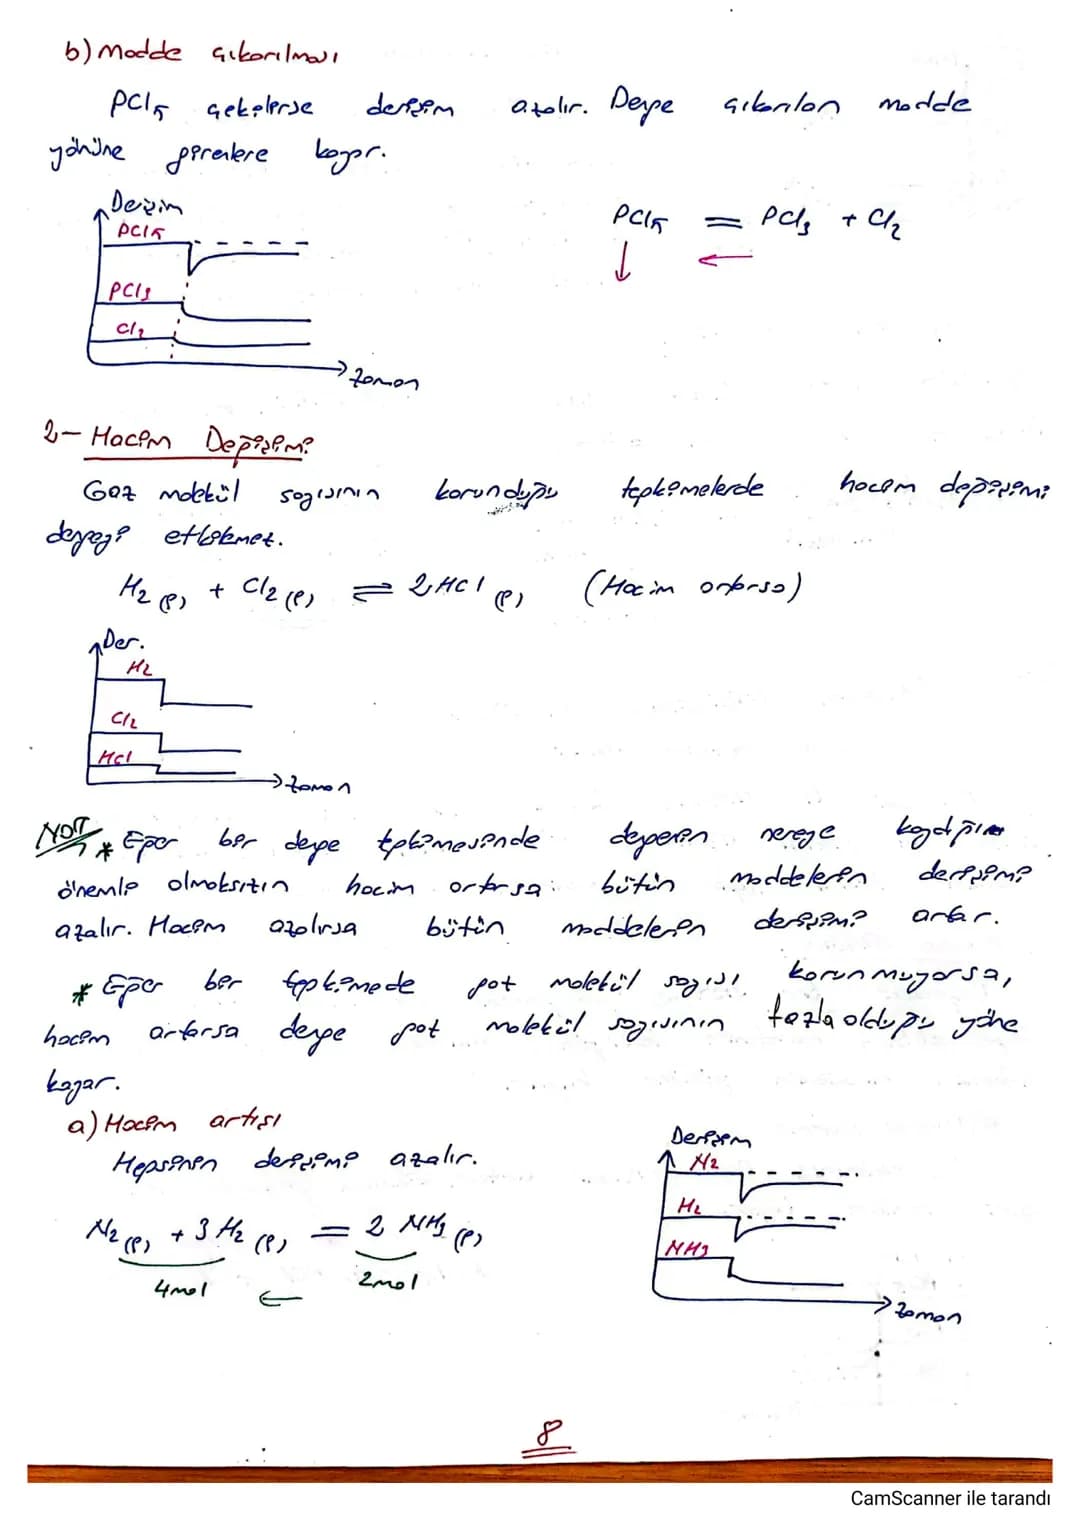 b) Madde çıkarılması
PCl5 çekilirse derişim azalır. Denge çıkarılan madde
yönüne girenlere kayar.
Derişim
PCl5
PCl3
Cl2
zaman
PCl5 = PCl3 + Cl2
↓ ←
2- Hacim Değişimi
Gaz molekül sayısının korunduğu tepkimelerde hacim değişimi
dengeyi etkilemez.
H2 (g) + Cl2 (g) ⇌ 2HCl (g) (Hacim artarsa)
Der.
H2
Cl2
HCl
zaman
NOT
* Eğer bir denge tepkimesinde dengenin nereye kaydığını
önemli olmaksızın hacim artarsa bütün maddelerin derişimi
azalır. Hacim azalırsa bütün maddelerin derişimi artar.
* Eğer bir tepkimede gaz molekül sayısı korunmuyorsa,
hacim artarsa denge gaz molekül sayısının fazla olduğu yöne
kayar.
a) Hacim artışı
Hepsinin derişimi azalır.
N2 (g) + 3H2 (g) = 2 NH3 (g)
4mol ← 2mol
Derişim
N2
H2
NH3
zaman
8
CamScanner ile tarandı